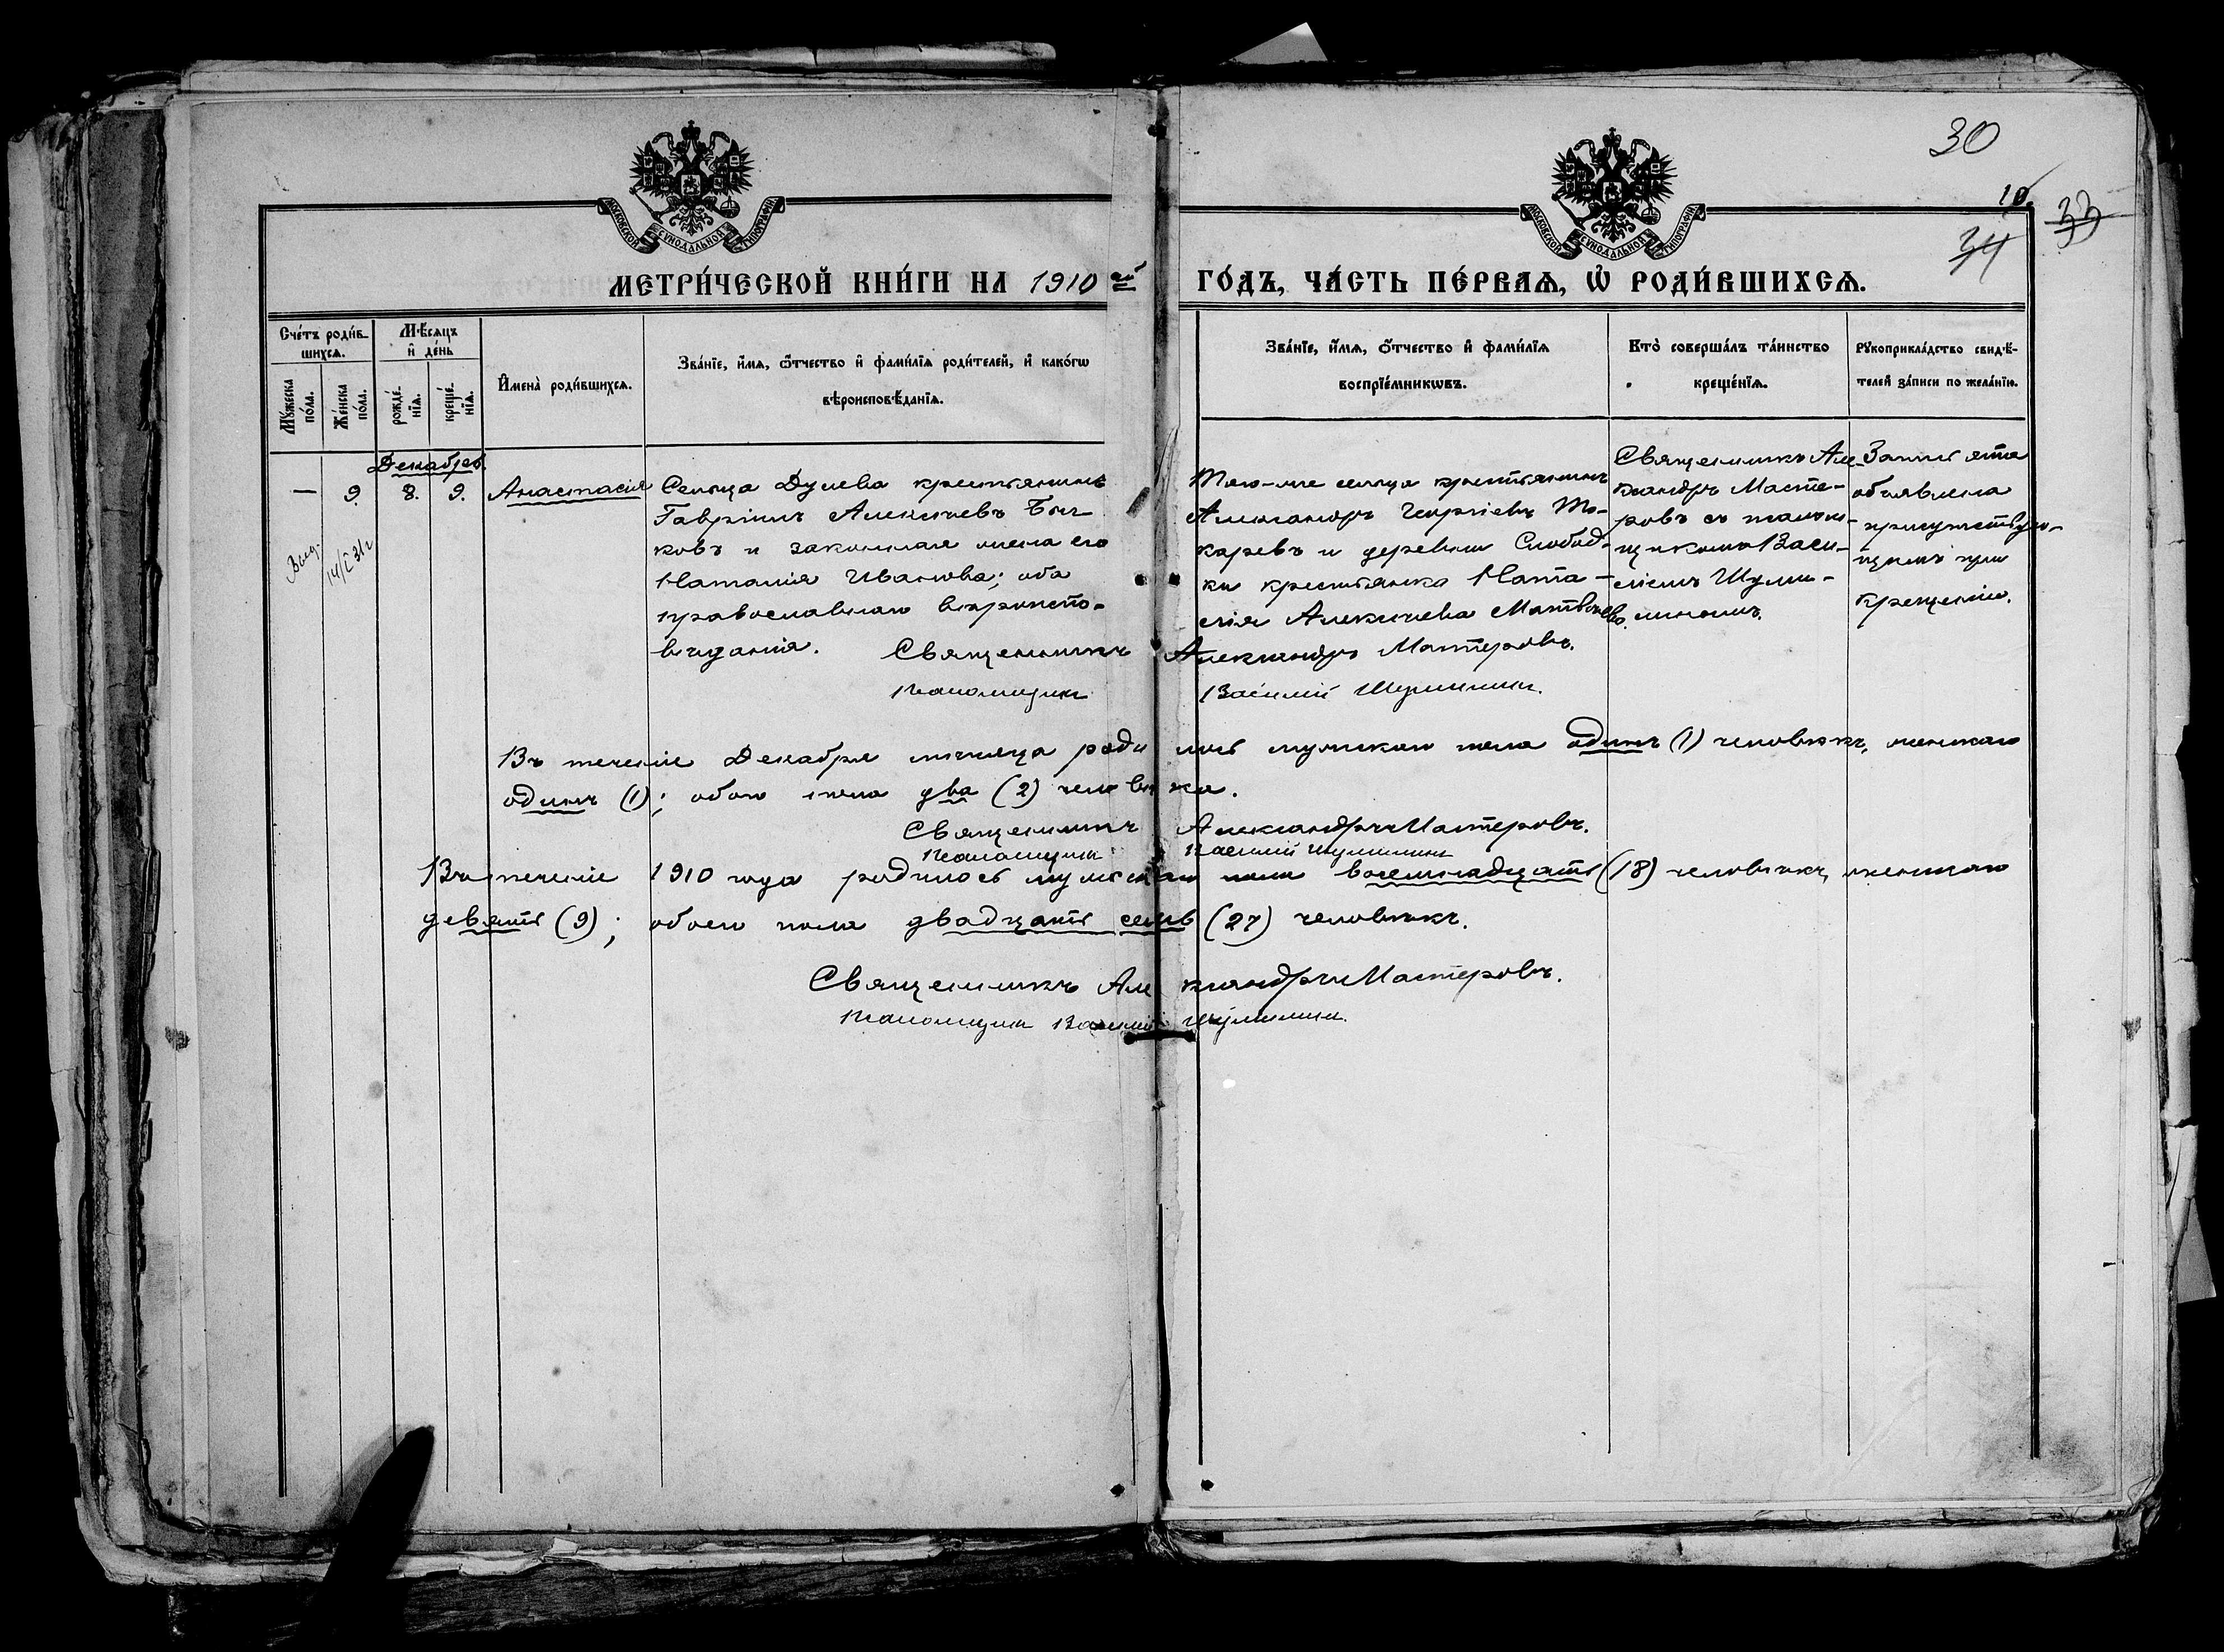 30
10.
33
34
МОСКОВСКОЙ СѴНОДАЛЬНОЙ ТИПОГРАФІИ
МОСКОВСКОЙ СѴНОДАЛЬНОЙ ТИПОГРАФІИ
МЕТРИ́ЧЕСКОЙ КНИ́ГИ НА 1910 й ГО́ДЪ, ЧА́СТЬ ПЕ́РВАЯ, Ѡ҆ РОДИ́ВШИХСЯ.
Сче́тъ роди́в-
шихся.
Мꙋ́жеска по́ла.
Же́нска по́ла.
Мѣ́сяцъ
и҆ де́нь
рожде́-
нїя.
креще́-
нїя.
И҆мена̀ роди́вшихся.
Зва́нїе, и҆́мя, ѻ҆́тчество и҆ фами́лїя роди́телей, и҆ како́гѡ
вѣроисповѣ́данїя.
Зва́нїе, и҆́мя, ѻ҆́тчество и҆ фами́лїя
воспрїе́мникѡвъ.
Кто̀ соверша́лъ та́инство
креще́нїя.
Рꙋкоприкла́дство свидѣ́-
телей за́писи по жела́нїю.
Декабрь.
— 9. 8. 9. Анастасія
Выд.
14/I 31 г
Сельца Дулева крестьянинъ
Гавріилъ Алексѣевъ Быч-
ковъ и законная жена его
Наталія Иванова; оба
православнаго вѣроиспо-
вѣданія.
Того-же сельца крестьянинъ
Александръ Георгіевъ То-
каревъ и деревни Слобод-
ки крестьянка Ната-
лія Алексѣева Матвѣева.
Священникъ Але-
ксандръ Масте-
ровъ съ псалом-
щикомъ Васи-
ліемъ Шуми-
линымъ.
Запись эта
объявлена
присутствую-
щимъ при
крещеніи.
Священникъ Александръ Мастеровъ.
Псаломщикъ Василій Шумилинъ.
Въ теченіе Декабря мѣсяца родилось мужскаго пола одинъ (1) человѣкъ, женскаго
одинъ (1); обоего пола два (2) человѣка.
Священникъ Александръ Мастеровъ.
Псаломщикъ Василій Шумилинъ
Въ теченіе 1910 года родилось мужскаго пола восемнадцать (18) человѣкъ, женскаго
девять (9); обоего пола двадцать семь (27) человѣкъ.
Священникъ Александръ Мастеровъ.
Псаломщикъ Василій Шумилинъ.